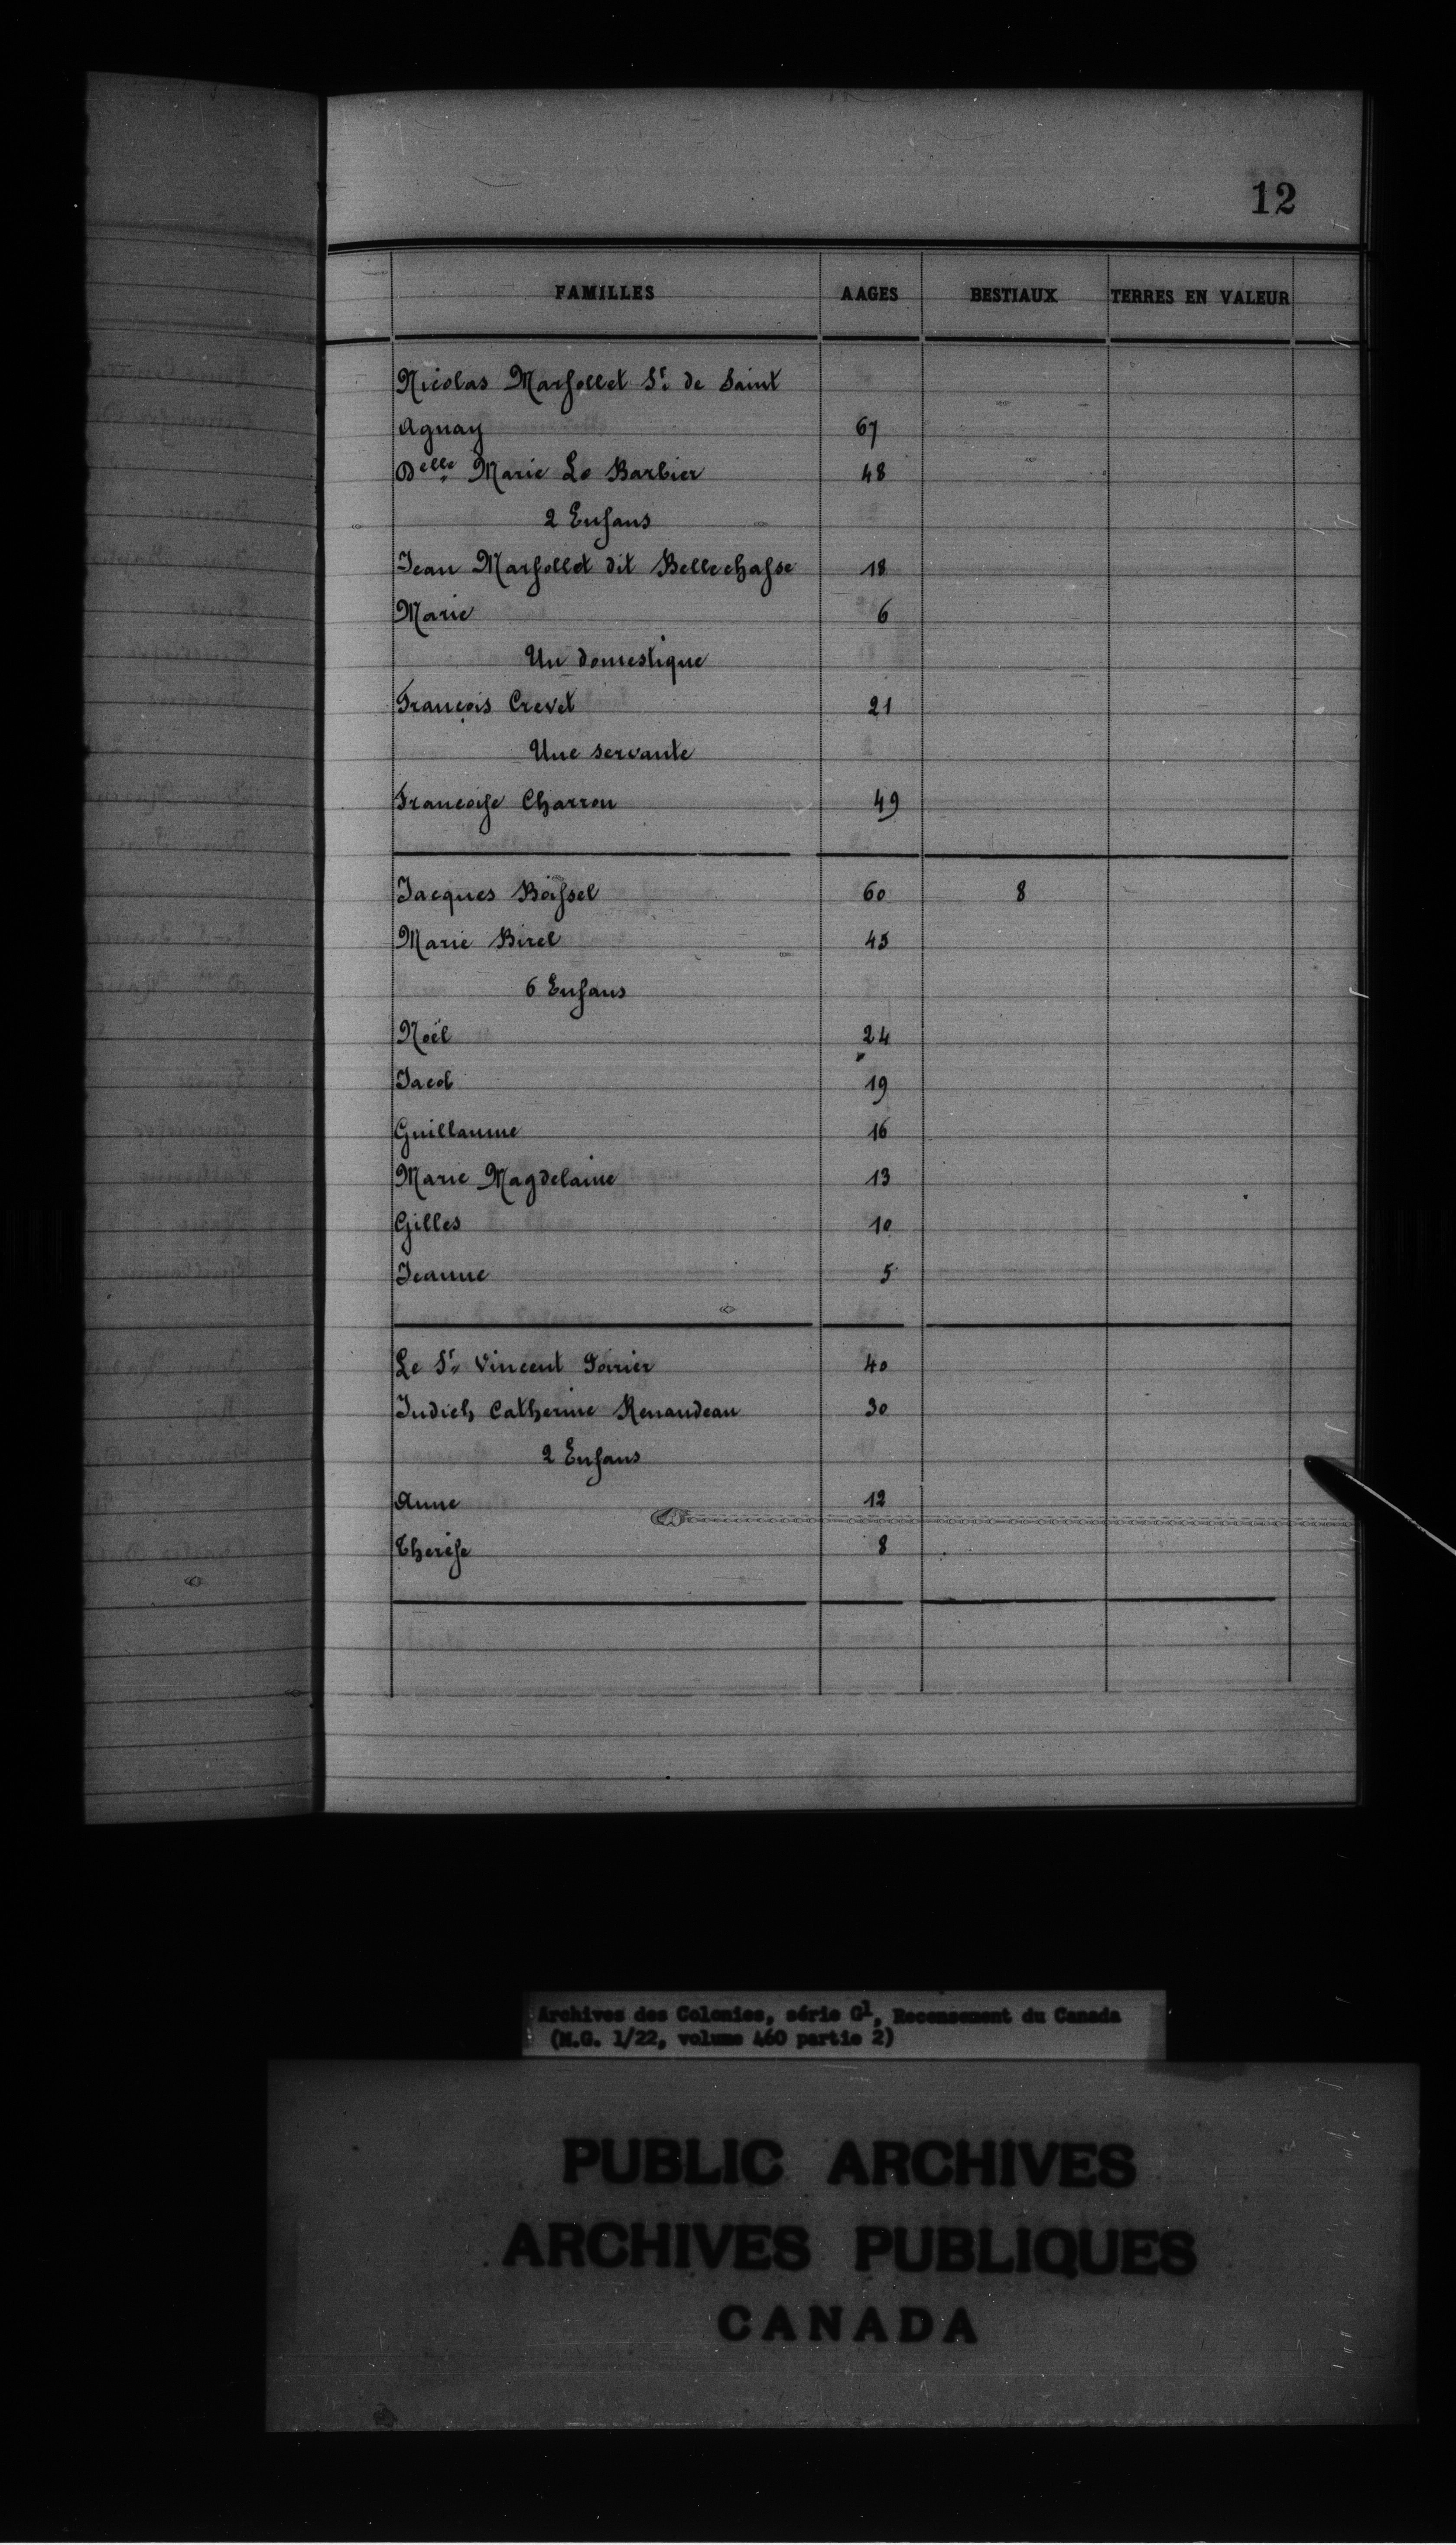 12
FAMILLES AAGES BESTIAUX TERRES EN VALEUR
Nicolas Marsollet Sr. de Saint
Aignay 67
Delle. Marie Le Barbier 48
2 Enfans
Jean Marsollet dit Bellechasse 18
Marie 6
Un domestique
François Crevet 21
Une servante
Françoise Charron 49
Jacques Boissel 60 8
Marie Birel 45
6 Enfans
Noël 24
Jacob 19
Guillaume 16
Marie Magdelaine 13
Gilles 10
Jeanne 5
Le Sr. Vincent Poirier 40
Judich Catherine Renaudeau 30
2 Enfans
Anne 12
Therese 8
Archives des Colonies, série G1, Recensement du Canada
(M.G. 1/22, volume 460 partie 2)
PUBLIC ARCHIVES
ARCHIVES PUBLIQUES
CANADA